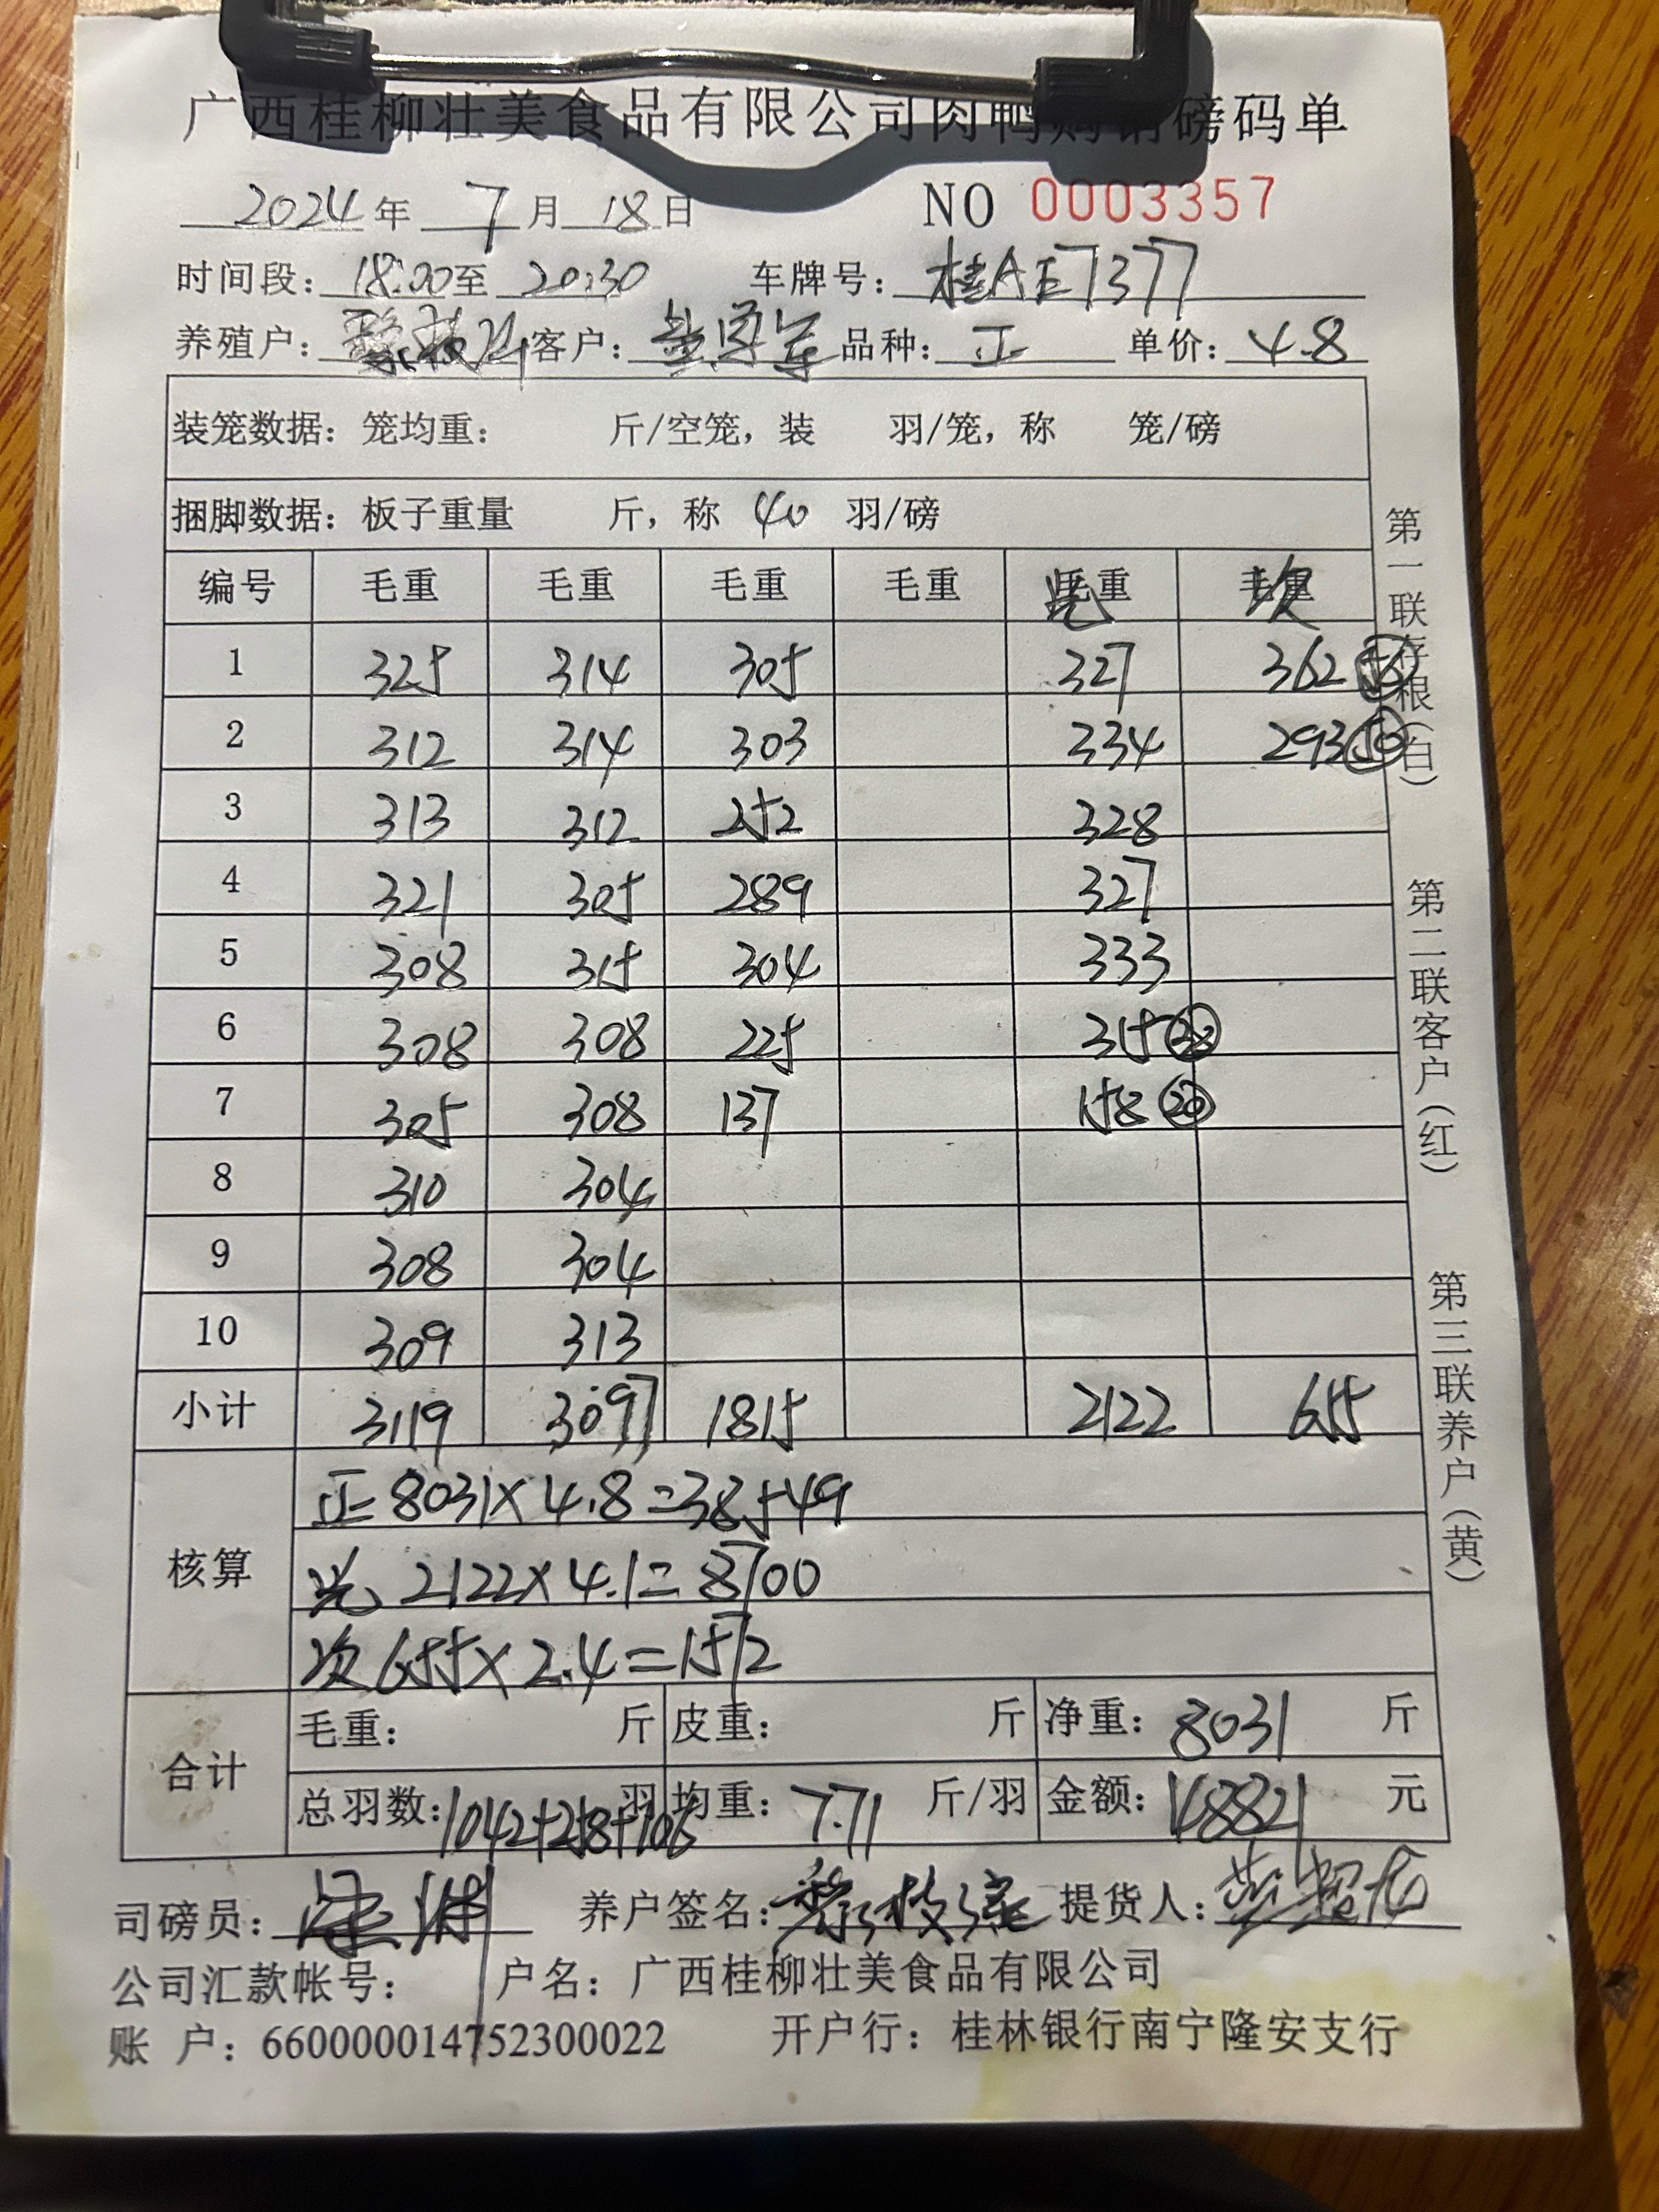 广西桂柳壮美食品有限公司肉鸭购销磅码单
2024年 7月 18日 NO 0003357
时间段：18:00至 20:30 车牌号：桂AE7377
养殖户： 客户： 品种：正 单价：4.8
装笼数据：笼均重： 斤/空笼，装 羽/笼，称 笼/磅
捆脚数据：板子重量 斤，称 40 羽/磅
编号 毛重 毛重 毛重 毛重 毛重 光 毛重 次
1 325 314 305 327 362 56
2 312 314 303 334 293 50
3 313 312 252 328
4 321 305 289 327
5 308 315 304 333
6 308 308 225 315 38
7 305 308 137 158 20
8 310 304
9 308 304
10 309 313
小计 3119 3097 1815 2122 655
核算
正 8031×4.8=38549
光 2122×4.1=8700
次 655×2.4=1572
合计
毛重： 斤 皮重： 斤 净重：8031 斤
总羽数：1042+258+106 羽 均重：7.71 斤/羽 金额：48821 元
司磅员： 养户签名： 提货人：
公司汇款帐号： 户名：广西桂柳壮美食品有限公司
账 户：660000014752300022 开户行：桂林银行南宁隆安支行
第一联存根（白）
第二联客户（红）
第三联养户（黄）